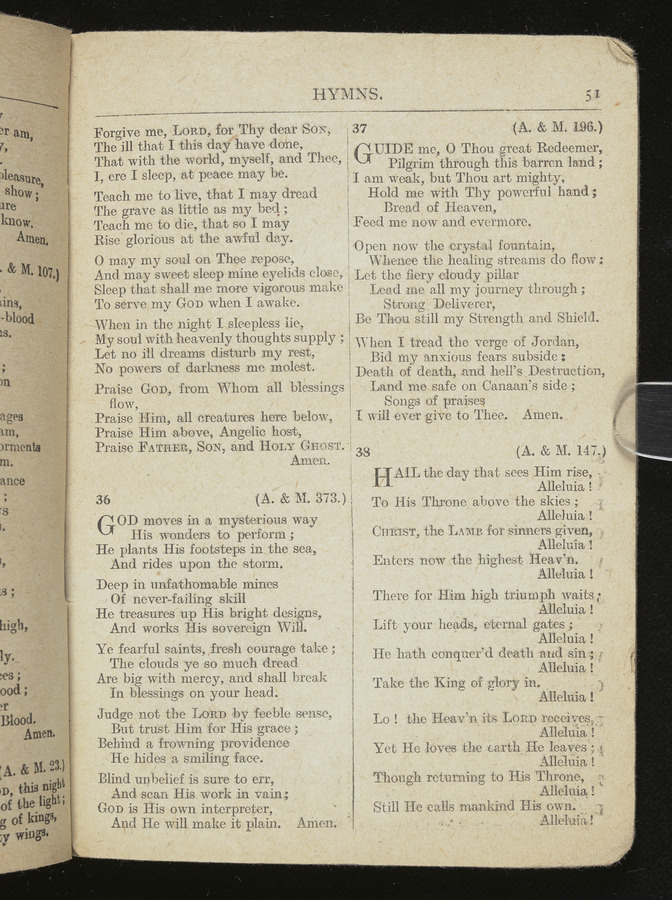 er am,
pleasure,
show ;
ure
know.
Amen.
& M. 107.)
ins,
-blood
ns.
;
on
ages
am,
orments
m.
ance
;
rs
s ;
high,
ly.
ces ;
ood ;
er
Blood.
Amen.
(A. & M. 23.)
D, this night
of the light ;
g of kings,
y wings.
HYMNS. 51
Forgive me, LORD, for Thy dear SON,
The ill that I this day have done,
That with the world, myself, and Thee,
I, ere I sleep, at peace may be.
Teach me to live, that I may dread
The grave as little as my bed ;
Teach me to die, that so I may
Rise glorious at the awful day.
O may my soul on Thee repose,
And may sweet sleep mine eyelids close,
Sleep that shall me more vigorous make
To serve my GOD when I awake.
When in the night I sleepless lie,
My soul with heavenly thoughts supply ;
Let no ill dreams disturb my rest,
No powers of darkness me molest.
Praise GOD, from Whom all blessings
flow,
Praise Him, all creatures here below,
Praise Him above, Angelic host,
Praise FATHER, SON, and HOLY GHOST.
Amen.
36 (A. & M. 373.)
GOD moves in a mysterious way
His wonders to perform ;
He plants His footsteps in the sea,
And rides upon the storm.
Deep in unfathomable mines
Of never-failing skill
He treasures up His bright designs,
And works His sovereign Will.
Ye fearful saints, fresh courage take ;
The clouds ye so much dread
Are big with mercy, and shall break
In blessings on your head.
Judge not the LORD by feeble sense,
But trust Him for His grace ;
Behind a frowning providence
He hides a smiling face.
Blind unbelief is sure to err,
And scan His work in vain ;
GOD is His own interpreter,
And He will make it plain. Amen.
37 (A. & M. 196.)
GUIDE me, O Thou great Redeemer,
Pilgrim through this barren land ;
I am weak, but Thou art mighty,
Hold me with Thy powerful hand ;
Bread of Heaven,
Feed me now and evermore.
Open now the crystal fountain,
Whence the healing streams do flow ;
Let the fiery cloudy pillar
Lead me all my journey through ;
Strong Deliverer,
Be Thou still my Strength and Shield.
When I tread the verge of Jordan,
Bid my anxious fears subside :
Death of death, and hell's Destruction,
Land me safe on Canaan's side ;
Songs of praises
I will ever give to Thee. Amen.
38 (A. & M. 147.)
HAIL the day that sees Him rise,
Alleluia !
To His Throne above the skies ;
Alleluia !
CHRIST, the LAMB for sinners given,
Alleluia !
Enters now the highest Heav'n.
Alleluia !
There for Him high triumph waits ;
Alleluia !
Lift your heads, eternal gates ;
Alleluia !
He hath conquer'd death and sin ;
Alleluia !
Take the King of glory in.
Alleluia !
Lo ! the Heav'n its LORD receives,
Alleluia !
Yet He loves the earth He leaves ;
Alleluia !
Though returning to His Throne,
Alleluia !
Still He calls mankind His own.
Alleluia !